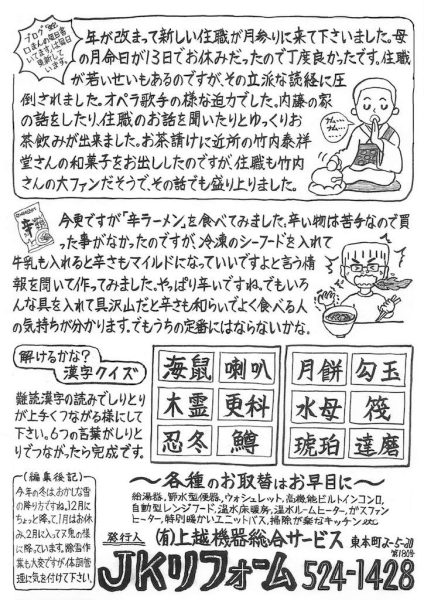 ブログ
口まんの毎日書
いてます。毎日
更新して
います
年が改まって新しい住職が月参りに来て下さいました。母
の月命日が13日でお休みだったので丁度良かったです。住職
が若いせいもあるのですが、その立派な読経に圧
倒されました。オペラ歌手の様な迫力でした。内藤の家
の話をしたり、住職のお話を聞いたりとゆっくりお
茶飲みが出来ました。お茶請けに近所の竹内泰祥
堂さんの和菓子をお出ししたのですが、住職も竹内
さんの大ファンだそうで、その話でも盛り上りました。
辛
今更ですが「辛ラーメン」を食べてみました。辛い物は苦手なので買
った事がなかったのですが、冷凍のシーフードを入れて
牛乳も入れると辛さもマイルドになっていいですよと言う情
報を聞いて作ってみました。やっぱり辛いですね。でもいろ
んな具を入れて具沢山だと辛さも和らいでよく食べる人
の気持ちが分かります。でもうちの定番にはならないかな。
解けるかな?
漢字クイズ
難読漢字の読みでしりとり
が上手くつながる様にして
下さい。6つの言葉がしりと
りでつながったら完成です。
海鼠 喇叭
木霊 更科
忍冬 鱒
月餅 勾玉
水母 筏
琥珀 達磨
(編集後記)
今年の冬はおかしな雪
の降り方ですね。12月に
ちょっと降って、1月はお休
み、2月に入って又鬼の様
に降っています。除雪作
業も大変ですが体調管
理に気を付けて下さい。
〜各種のお取替はお早目に〜
給湯器、貯水型便器、ウォシュレット、高機能ビルトインコンロ、
自動型レンジフード、温水床暖房、温水ルームヒーター、ガスファン
ヒーター、特別暖かいユニットバス、掃除が楽なキッチン etc
発行人 (有)上越機器総合サービス 東本町2-5-20
JKリフォーム 524-1428